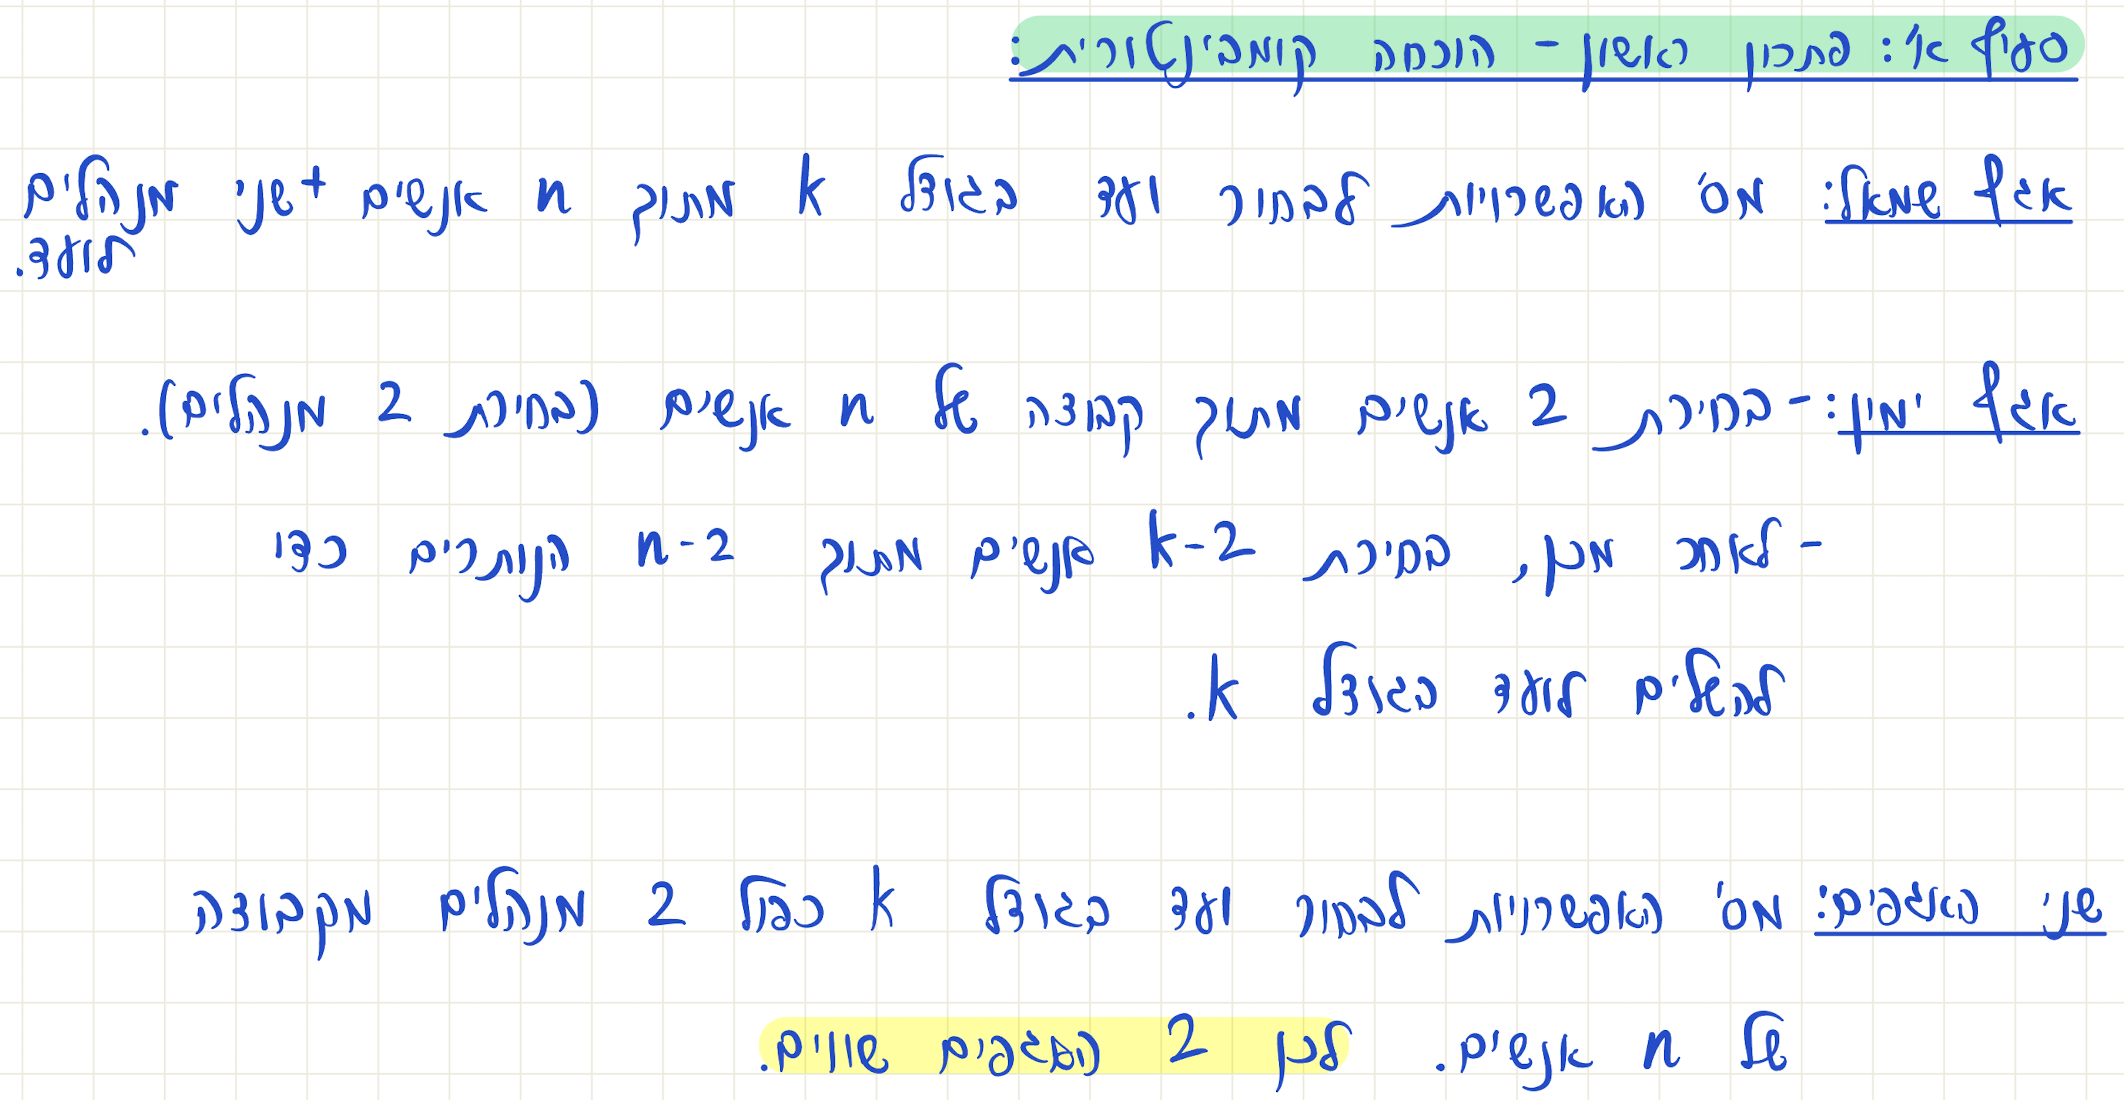 סעיף א': פתרון ראשון - הוכחה קומבינטורית:
אגף שמאל: מס' האפשרויות לבחור ועד בגודל k מתוך n אנשים + שני מנהלים
לועד.
אגף ימין: - בחירת 2 אנשים מתוך קבוצה של n אנשים (בחירת 2 מנהלים).
- לאחר מכן, בחירת k-2 אנשים מתוך n-2 הנותרים כדי
להשלים לועד בגודל k.
שני האגפים: מס' האפשרויות לבחור ועד בגודל k כפול 2 מנהלים מקבוצה
של n אנשים. לכן 2 האגפים שווים.